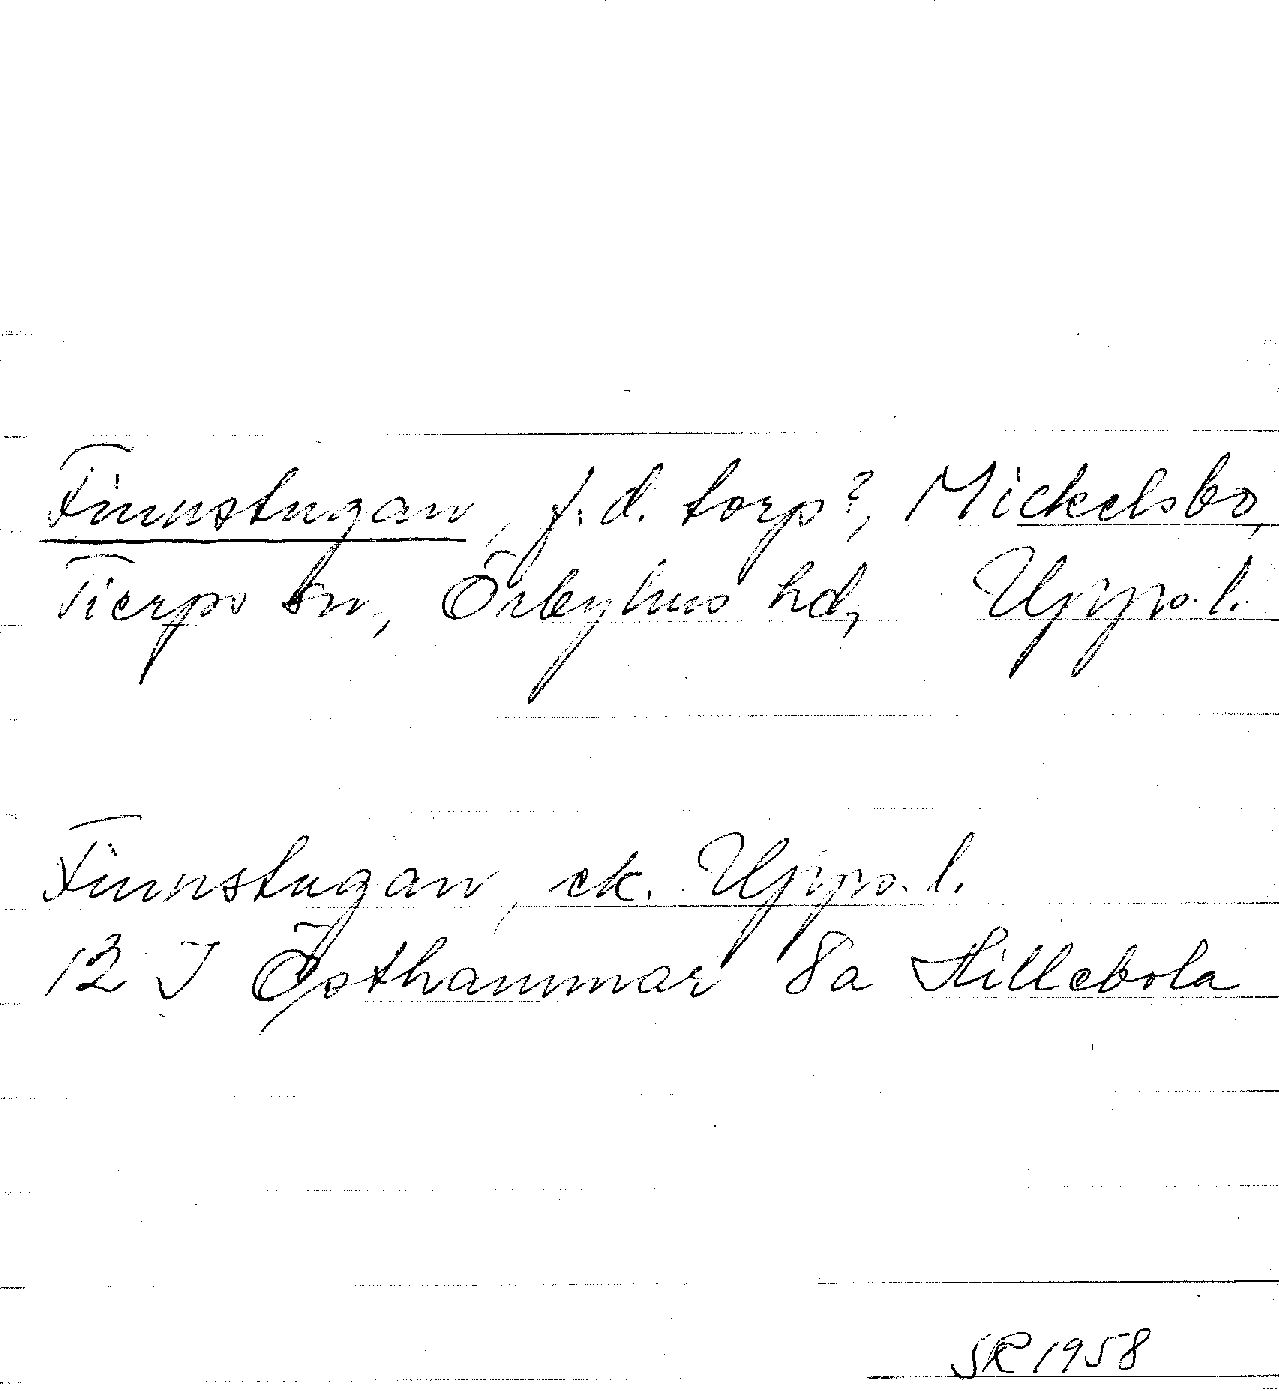 Finnstugan, f.d. torp?, Mickelsbo,
Tierps sn, Örbyhus hd, Upps. l.
Finnstugan, ek. Upps. l.
12 I Östhammar 8a Hillebola
SR 1958